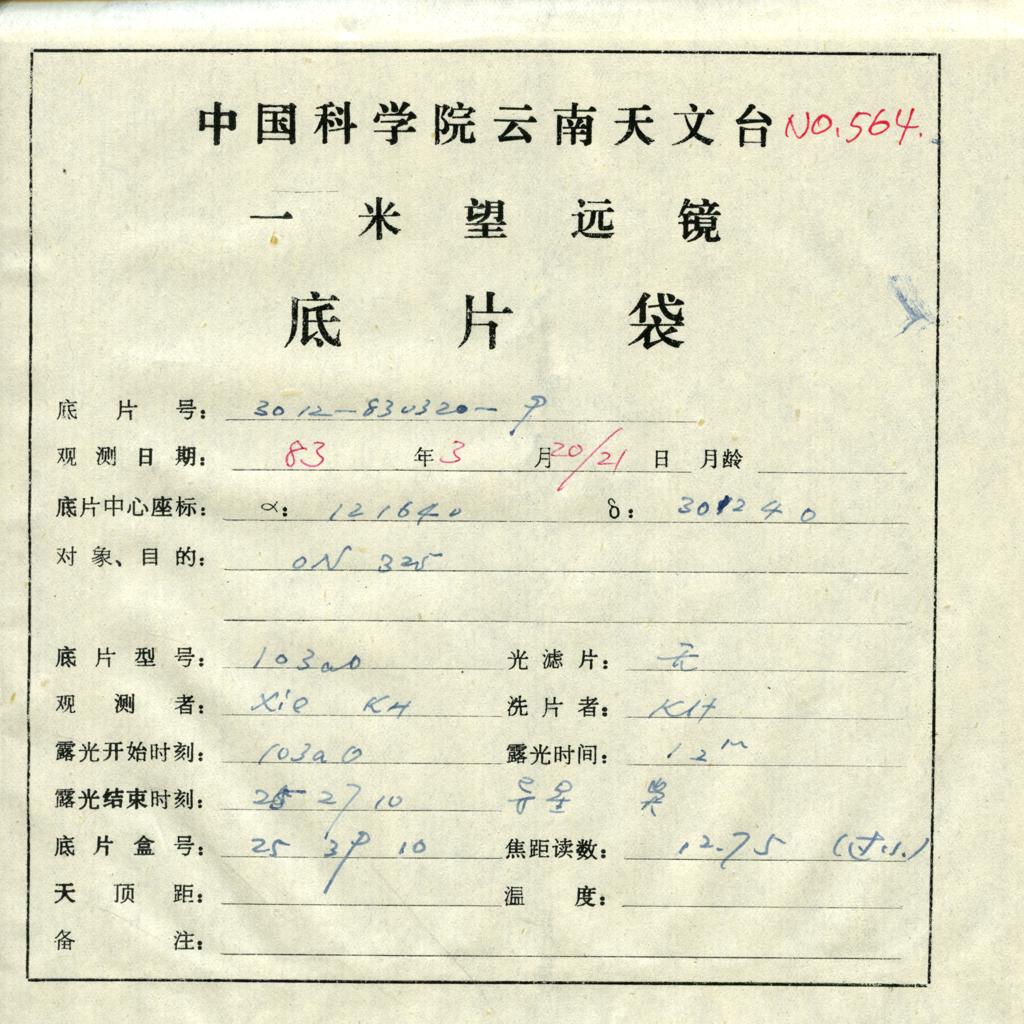 中国科学院云南天文台 NO.564.
一米望远镜
底片袋
底片号: 3012-830320-
观测日期: 83 年 3 月 20/21 日 月龄
底片中心座标: α: 121640 δ: 301240
对象、目的: ON 325
底片型号: 103aO 光滤片: 无
观测者: Xie KH 洗片者: KH
露光开始时刻: 103aO 露光时间: 12m
露光结束时刻: 25 27 10 导星 吴
底片盒号: 25 39 10 焦距读数: 12.75 (过小)
天顶距: 温度:
备注: